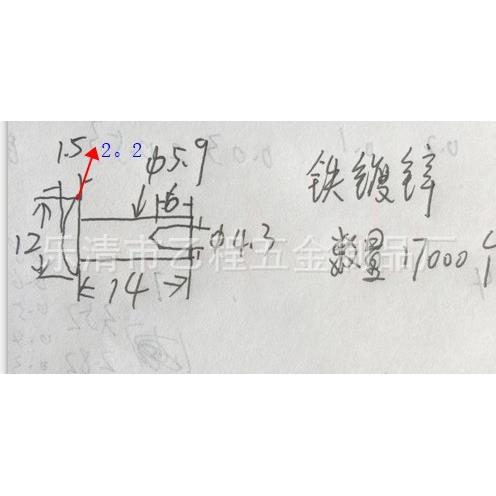 1.5
2。2
φ5.9
6
12
φ4.3
14
铁镀锌
数量17000个
乐清市乙程五金制品厂